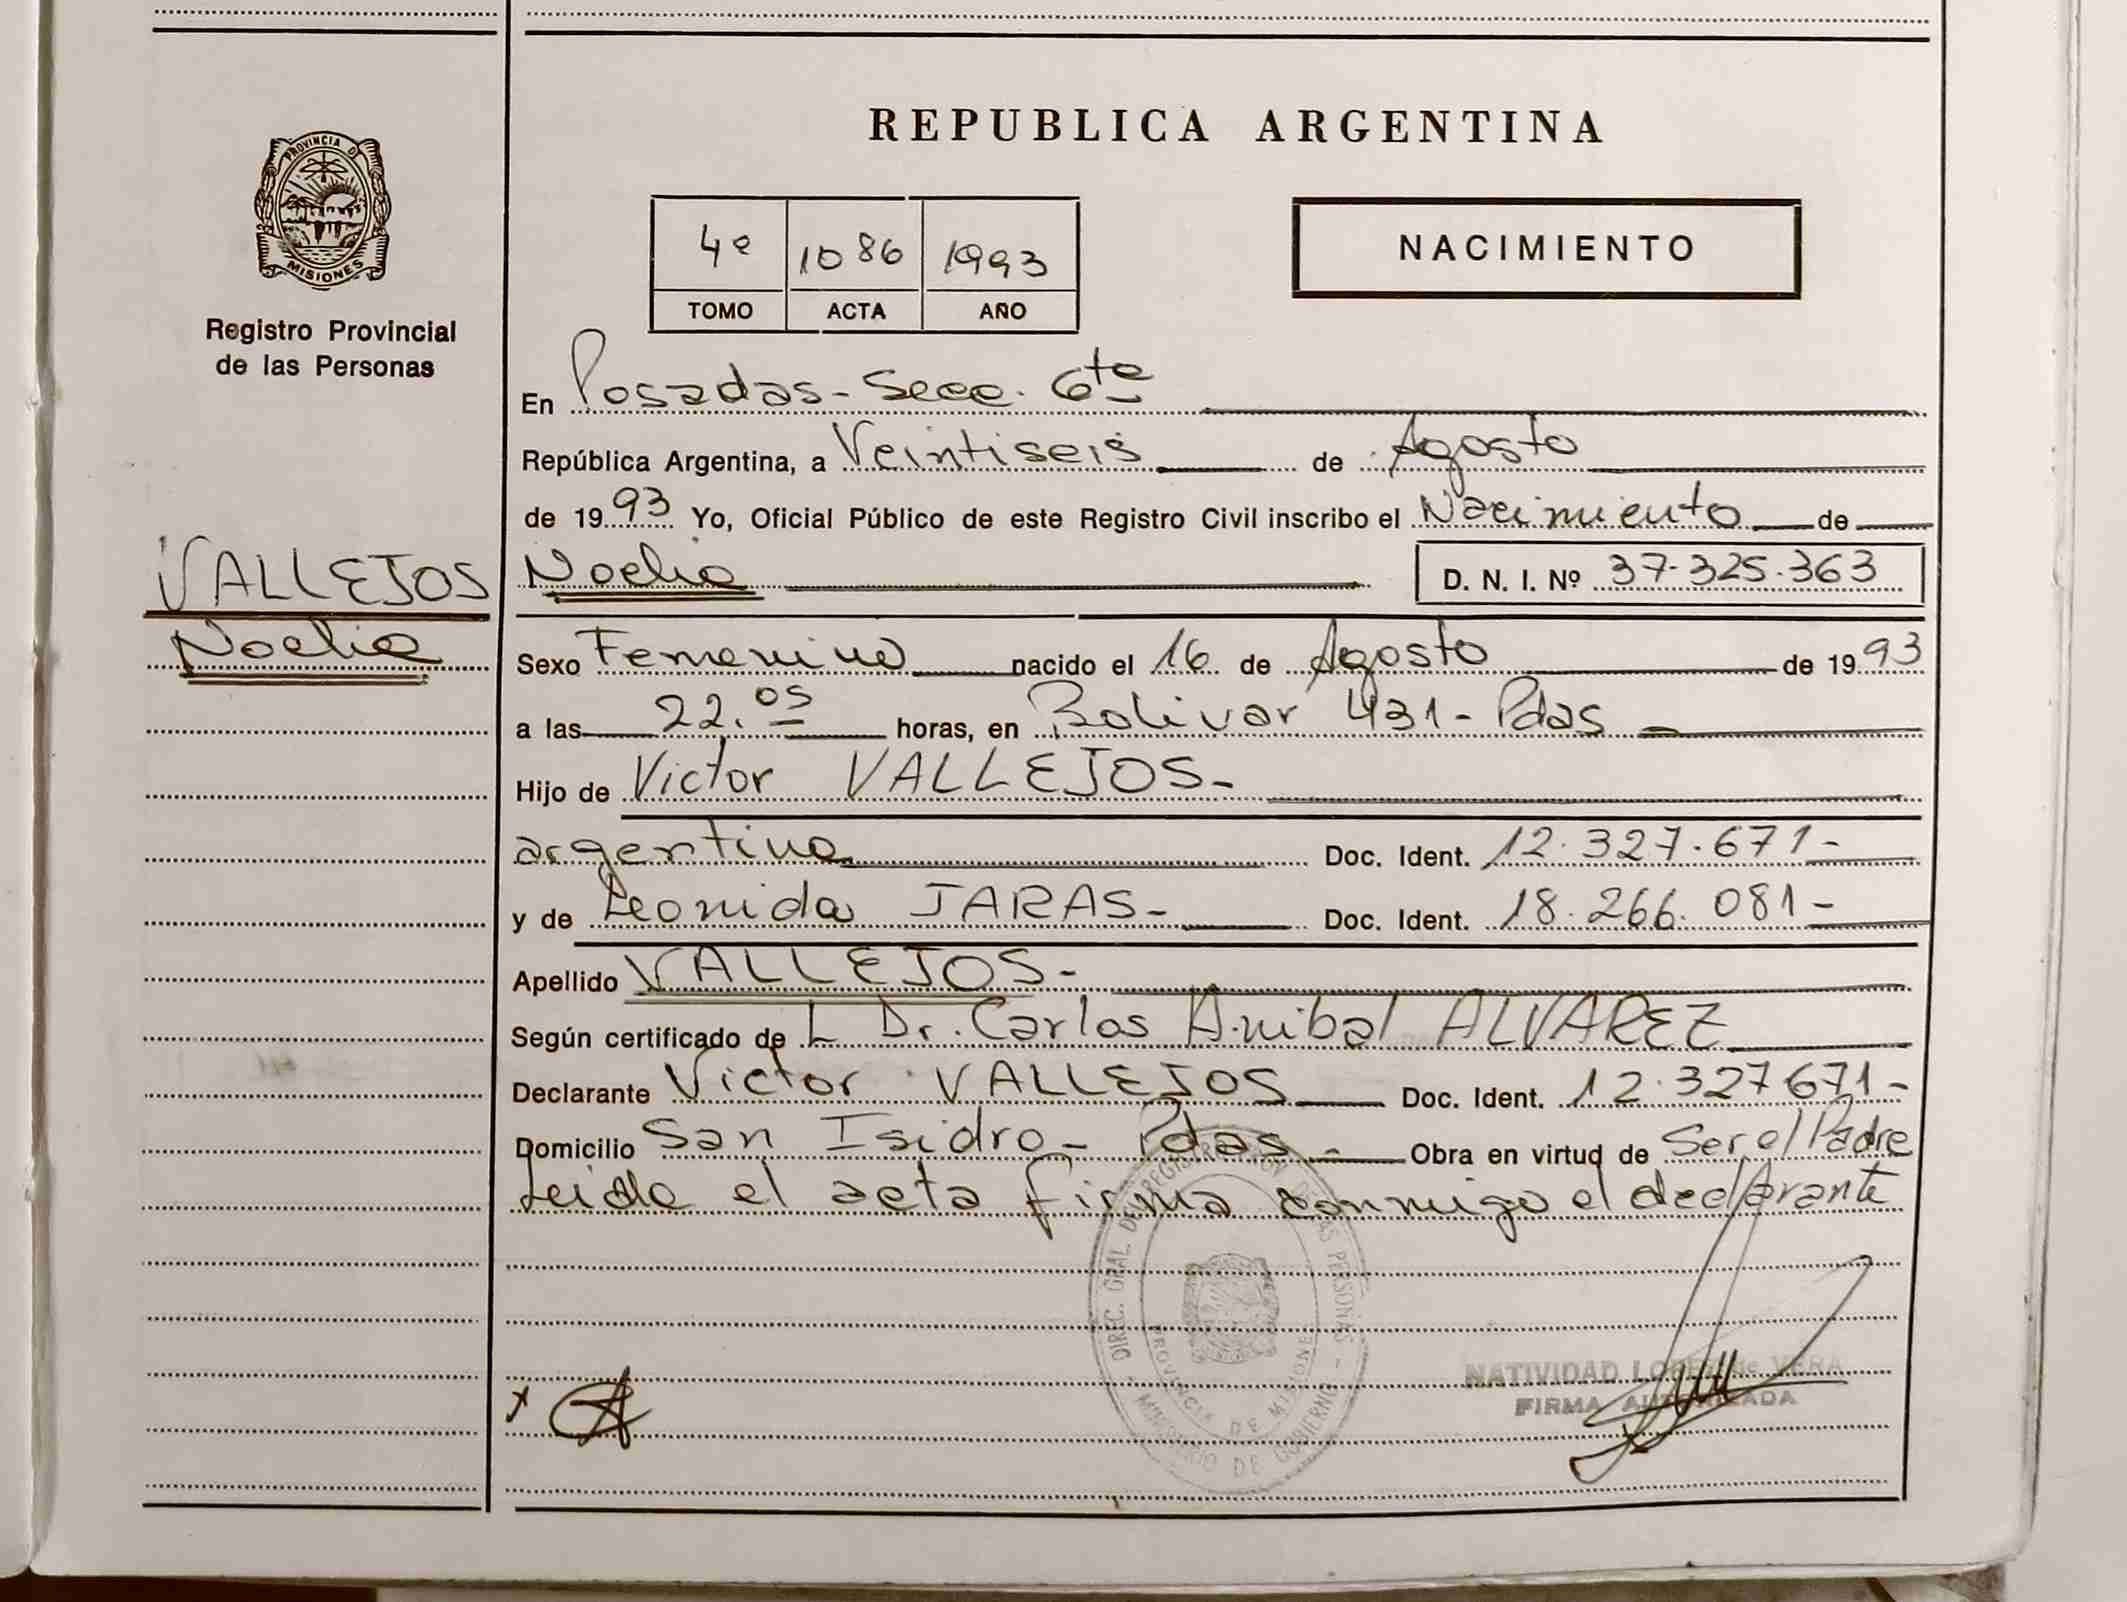 REPUBLICA ARGENTINA
PROVINCIA DE
MISIONES
Registro Provincial
de las Personas
4º 1086 1993
TOMO ACTA AÑO
NACIMIENTO
En Posadas - Secc. 6ta
República Argentina, a Veintiseis de Agosto
de 1993 Yo, Oficial Público de este Registro Civil inscribo el Nacimiento de
VALLEJOS
Noelia
Noelia D. N. I. Nº 37.325.363
Sexo Femenino nacido el 16 de Agosto de 1993
a las 22.05 horas, en Bolivar 431 - Pdas
Hijo de Victor VALLEJOS -
argentino Doc. Ident. 12.327.671 -
y de Leonida JARAS - Doc. Ident. 18.266.081 -
Apellido VALLEJOS -
Según certificado de L Dr. Carlos Anibal ALVAREZ
Declarante Victor VALLEJOS Doc. Ident. 12.327671 -
Domicilio San Isidro - Pdas - Obra en virtud de Ser el Padre
Leida el acta firma conmigo el declarante
DIREC. GRAL. DE REGISTRACION DE LAS PERSONAS -
PROVINCIA DE MISIONES
MINISTERIO DE GOBIERNO
NATIVIDAD de VERA
FIRMA AUTORIZADA